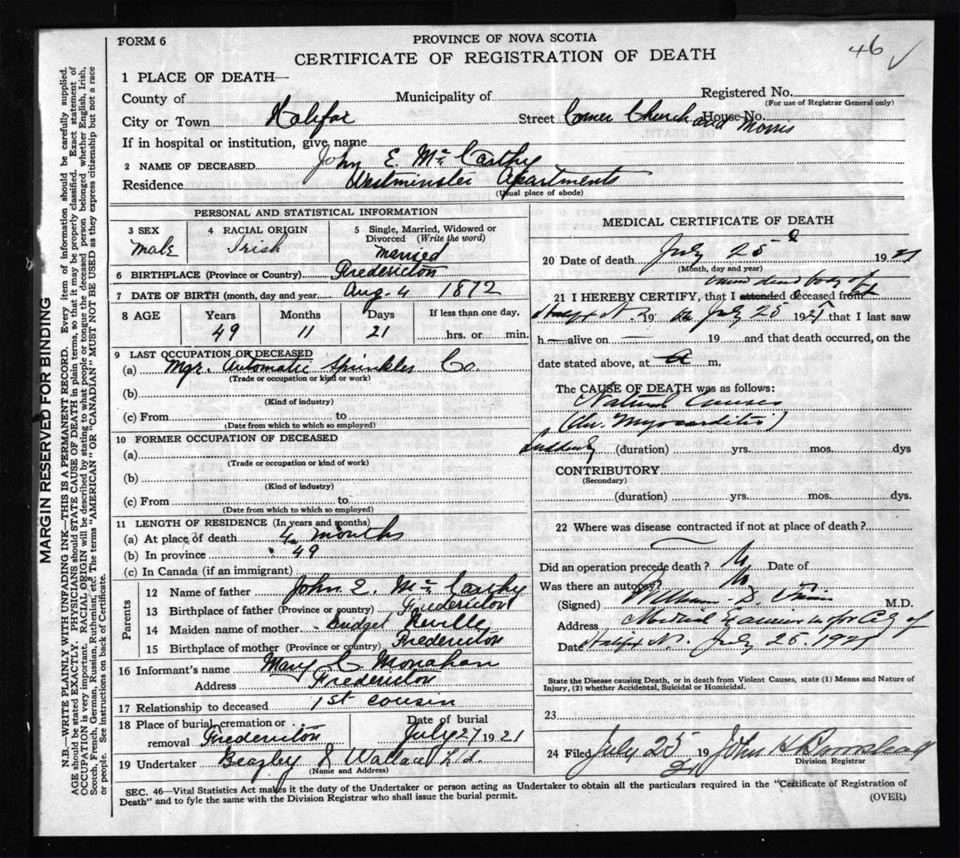 FORM 6
PROVINCE OF NOVA SCOTIA
CERTIFICATE OF REGISTRATION OF DEATH
46 ✓
1 PLACE OF DEATH—
County of
Municipality of
Registered No.
(For use of Registrar General only)
City or Town Halifax
Street Corner Church and Morris
House No.
If in hospital or institution, give name
2 NAME OF DECEASED John E. McCarthy
Residence Westminster Apartments
(Usual place of abode)
PERSONAL AND STATISTICAL INFORMATION
3 SEX
Male
4 RACIAL ORIGIN
Irish
5 Single, Married, Widowed or
Divorced (Write the word)
Married
6 BIRTHPLACE (Province or Country) Fredericton
7 DATE OF BIRTH (month, day and year) Aug. 4 1872
8 AGE Years Months Days If less than one day,
49 11 21 hrs. or min.
9 LAST OCCUPATION OF DECEASED
(a) Mgr. Automatic Sprinkler Co.
(Trade or occupation or kind or work)
(b)
(Kind of industry)
(c) From to
(Date from which to which so employed)
10 FORMER OCCUPATION OF DECEASED
(a)
(Trade or occupation or kind of work)
(b)
(Kind of industry)
(c) From to
(Date from which to which so employed)
11 LENGTH OF RESIDENCE (In years and months)
(a) At place of death 4 months
(b) In province 49
(c) In Canada (if an immigrant)
Parents
12 Name of father John E. McCarthy
13 Birthplace of father (Province or country) Fredericton
14 Maiden name of mother Bridget Neville
15 Birthplace of mother (Province or country) Fredericton
16 Informant's name Mary C Monahan
Address Fredericton
17 Relationship to deceased 1st cousin
18 Place of burial, cremation or
removal Fredericton
Date of burial
July 27 1921
19 Undertaker Beazley & Wallace Ltd.
(Name and Address)
MEDICAL CERTIFICATE OF DEATH
20 Date of death July 25 1921
(Month, day and year)
dead body of
21 I HEREBY CERTIFY, that I attended deceased from
19 to July 25 1921 that I last saw
h— alive on — 19 and that death occurred, on the
date stated above, at m.
The CAUSE OF DEATH was as follows:
Natural Causes
(Chr. Myocarditis)
Suddenly (duration) yrs. mos. dys
CONTRIBUTORY
(Secondary)
(duration) yrs. mos. dys.
22 Where was disease contracted if not at place of death?
Did an operation precede death? No Date of
Was there an autopsy? No
(Signed) M.D.
Address Medical Examiner for City of
Date July 25 1921
State the Disease causing Death, or in death from Violent Causes, state (1) Means and Nature of
Injury, (2) whether Accidental, Suicidal or Homicidal.
23
24 Filed July 25 19 21 John K
Division Registrar
SEC. 46—Vital Statistics Act makes it the duty of the Undertaker or person acting as Undertaker to obtain all the particulars required in the "Certificate of Registration of
Death" and to fyle the same with the Division Registrar who shall issue the burial permit.
(OVER)
MARGIN RESERVED FOR BINDING
N.B.—WRITE PLAINLY WITH UNFADING INK—THIS IS A PERMANENT RECORD. Every item of information should be carefully supplied.
AGE should be stated EXACTLY. PHYSICIANS should STATE CAUSE OF DEATH in plain terms, so that it may be properly classified. Exact statement of
OCCUPATION is very important. RACIAL ORIGIN will be described by stating to what people or tongue the deceased person belonged whether English, Irish,
Scotch, French, German, Russian, Ruthenian, etc. The terms "AMERICAN" OR "CANADIAN" MUST NOT BE USED as they express citizenship but not a race
or people. See instructions on back of Certificate.